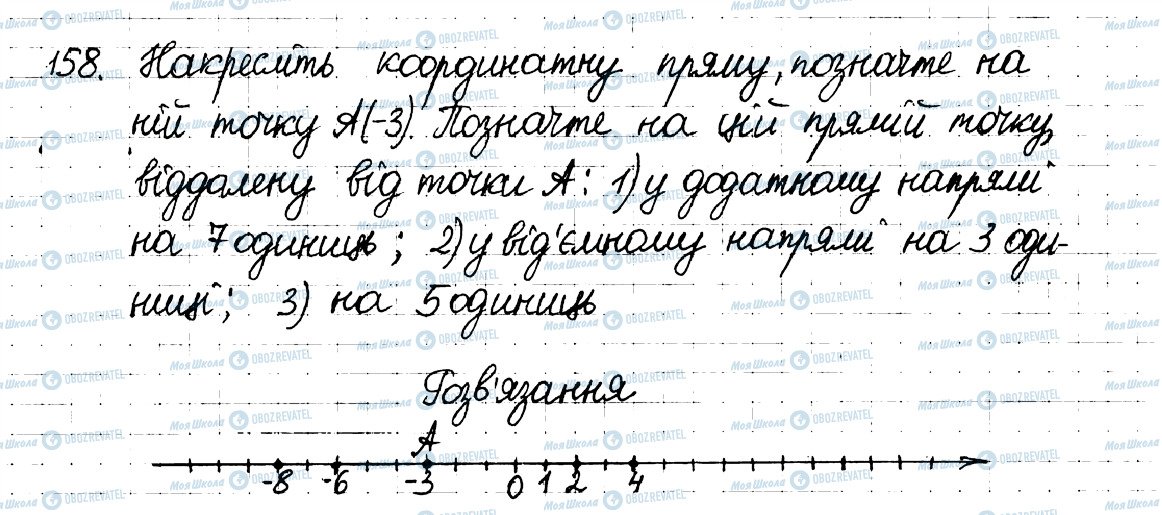 158. Накресліть координатну пряму, позначте на
ній точку A(-3). Позначте на цій прямій точку,
віддалену від точки A: 1) у додатному напрямі
на 7 одиниць; 2) у від'ємному напрямі на 3 оди-
ниці; 3) на 5 одиниць
Розв'язання
A
-8 -6 -3 0 1 2 4
Моя Школа OBOZREVATEL